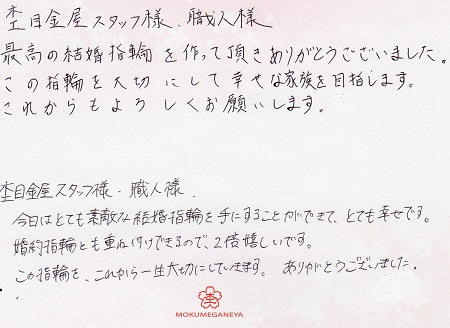 杢目金屋スタッフ様、職人様
最高の結婚指輪を作って頂きありがとうございました。
この指輪を大切にして幸せな家族を目指します。
これからもよろしくお願いします。
杢目金屋スタッフ様・職人様
今日はとても素敵な結婚指輪を手にすることができて、とても幸せです。
婚約指輪とも重ね付けできるので、2倍嬉しいです。
この指輪を、これから一生大切にしていきます。ありがとうございました。
MOKUMEGANEYA